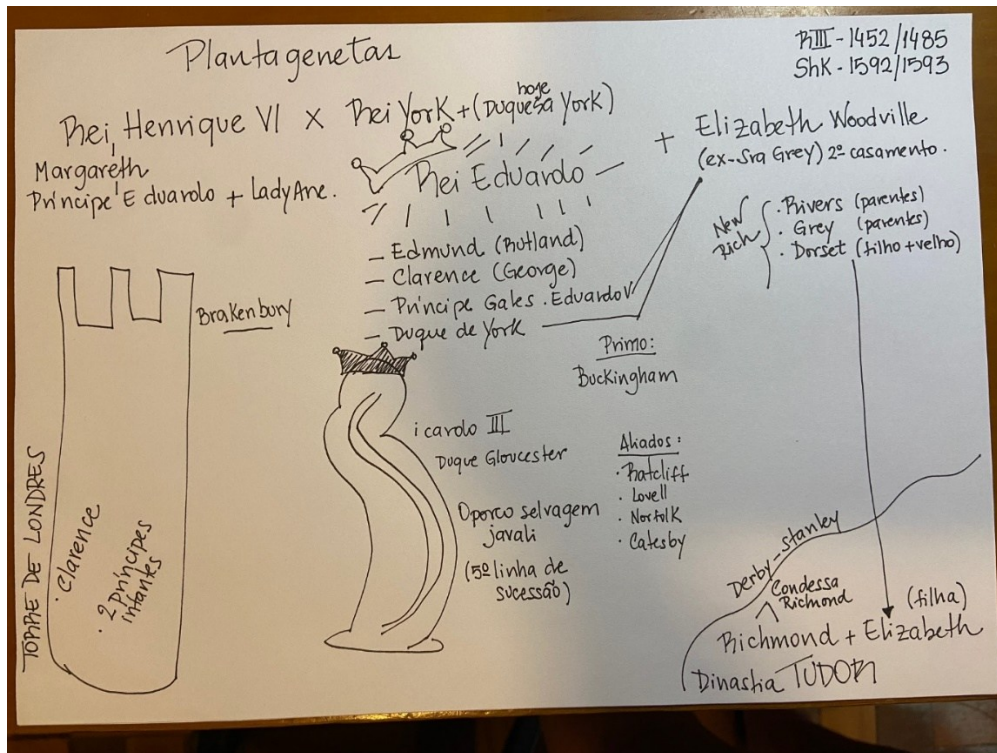 Plantagenetas
RIII - 1452/1485
ShK - 1592/1593
Rei Henrique VI X Rei York + (Duquesa York)
hoje
Margareth
Príncipe Eduardo + Lady Ane.
Rei Eduardo
+ Elizabeth Woodville
(ex-Sra Grey) 2º casamento.
New Rich
· Rivers (parentes)
· Grey (parentes)
· Dorset (filho + velho)
- Edmund (Rutland)
- Clarence (George)
- Príncipe Gales. Eduardo V
- Duque de York
Primo:
Buckingham
Brakenbury
TORRE DE LONDRES
· Clarence
· 2 príncipes infantes
icardo III
Duque Gloucester
O porco selvagem
javali
(5º linha de
sucessão)
Aliados:
· Ratcliff
· Lovell
· Norfolk
· Catesby
Derby - Stanley
Condessa
Richmond
(filha)
Richmond + Elizabeth
Dinastia TUDOR